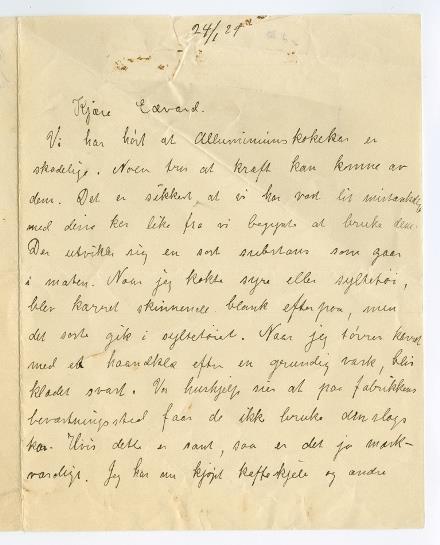 24/1 29
Kjære Edvard.
Vi har hört at Alluminiumskokekar er
skadelige. Noen tror at kræft kan komme av
dem. Det er sikkert at vi har vært lit mistænkelig
med disse kar like fra vi begynte at bruke dem.
Der utvikler sig en sort substans som gaar
i maten. Naar jeg kokte syre eller syltetöi,
blev karret skinnende blank efterpaa, men
det sorte gik i syltetöiet. Naar jeg törrer karret
med et haandklæ efter en grundig vask, blir
klædet svart. Vor hushjelp sier at paa fabrikkens
beværtningssted faar de ikke bruke den slags
kar. Hvis dette er sant, saa er det jo mærk-
værdigt. Jeg har nu kjöpt kaffekjele og andre